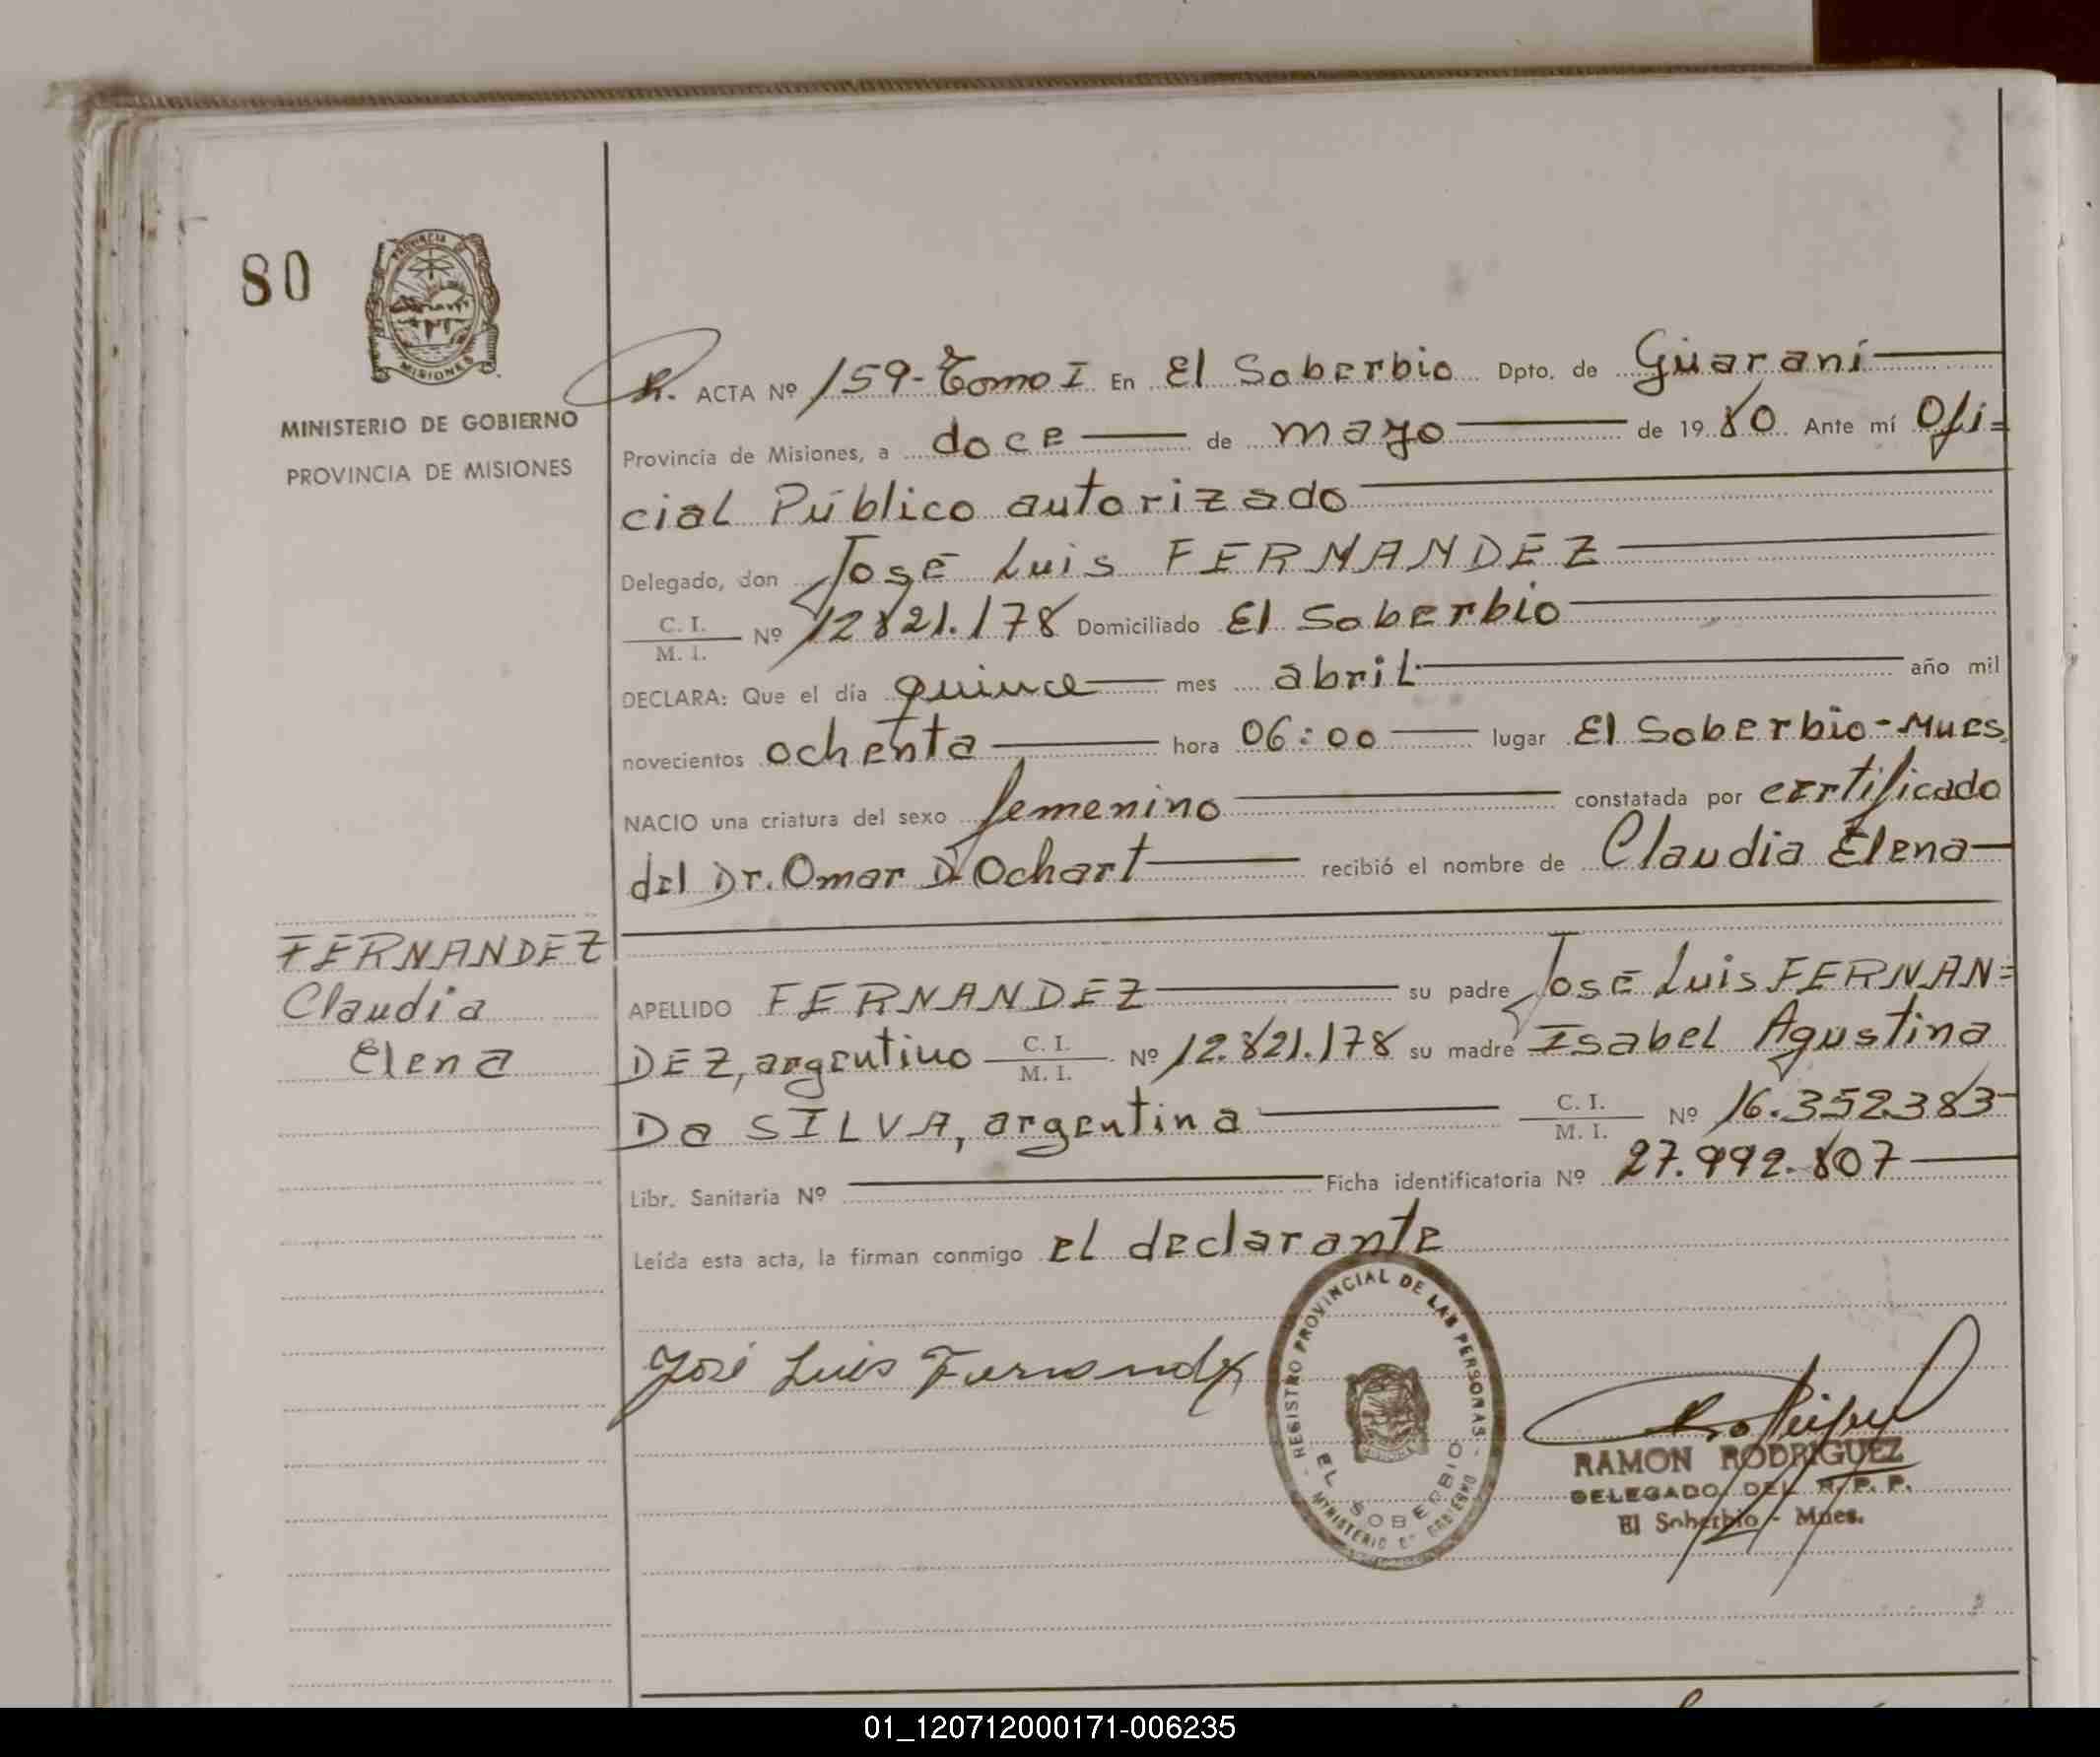 80
PROVINCIA DE
MISIONES
MINISTERIO DE GOBIERNO
PROVINCIA DE MISIONES
R. ACTA Nº 159-Tomo I En El Soberbio Dpto. de Guaraní
Provincia de Misiones, a doce de mayo de 1980 Ante mí Ofi=
cial Público autorizado
Delegado, don José Luis FERNANDEZ
C. I. / M. I. Nº 12821.178 Domiciliado El Soberbio
DECLARA: Que el día quince mes abril año mil
novecientos ochenta hora 06:00 lugar El Soberbio-Mnes
NACIO una criatura del sexo femenino constatada por certificado
del Dr. Omar D Ochart recibió el nombre de Claudia Elena
FERNANDEZ
Claudia
Elena
APELLIDO FERNANDEZ su padre José Luis FERNAN=
DEZ, argentino C. I. / M. I. Nº 12.821.178 su madre Isabel Agustina
Da SILVA, argentina C. I. / M. I. Nº 16.352383
Libr. Sanitaria Nº Ficha identificatoria Nº 27.992.807
Leída esta acta, la firman conmigo el declarante
José Luis Fernandez
- REGISTRO PROVINCIAL DE LAS PERSONAS -
EL SOBERBIO
MINISTERIO DE GOBIERNO
RAMON RODRIGUEZ
DELEGADO DEL R. P. P.
El Soberbio - Mnes.
01_120712000171-006235